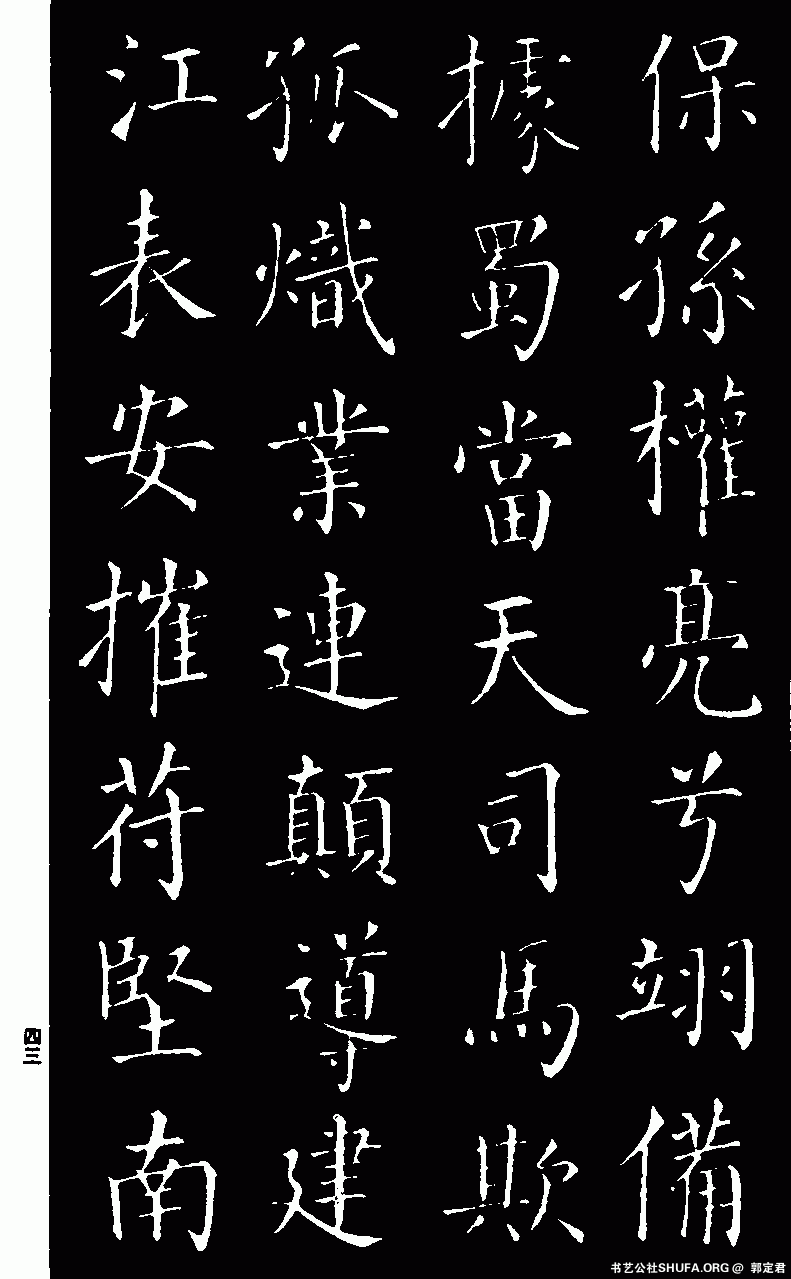 保孫權亮兮翊備
據蜀當天司馬欺
孤熾業連顛導建
江表安摧苻堅南
四三
书艺公社SHUFA.ORG @ 郭定君